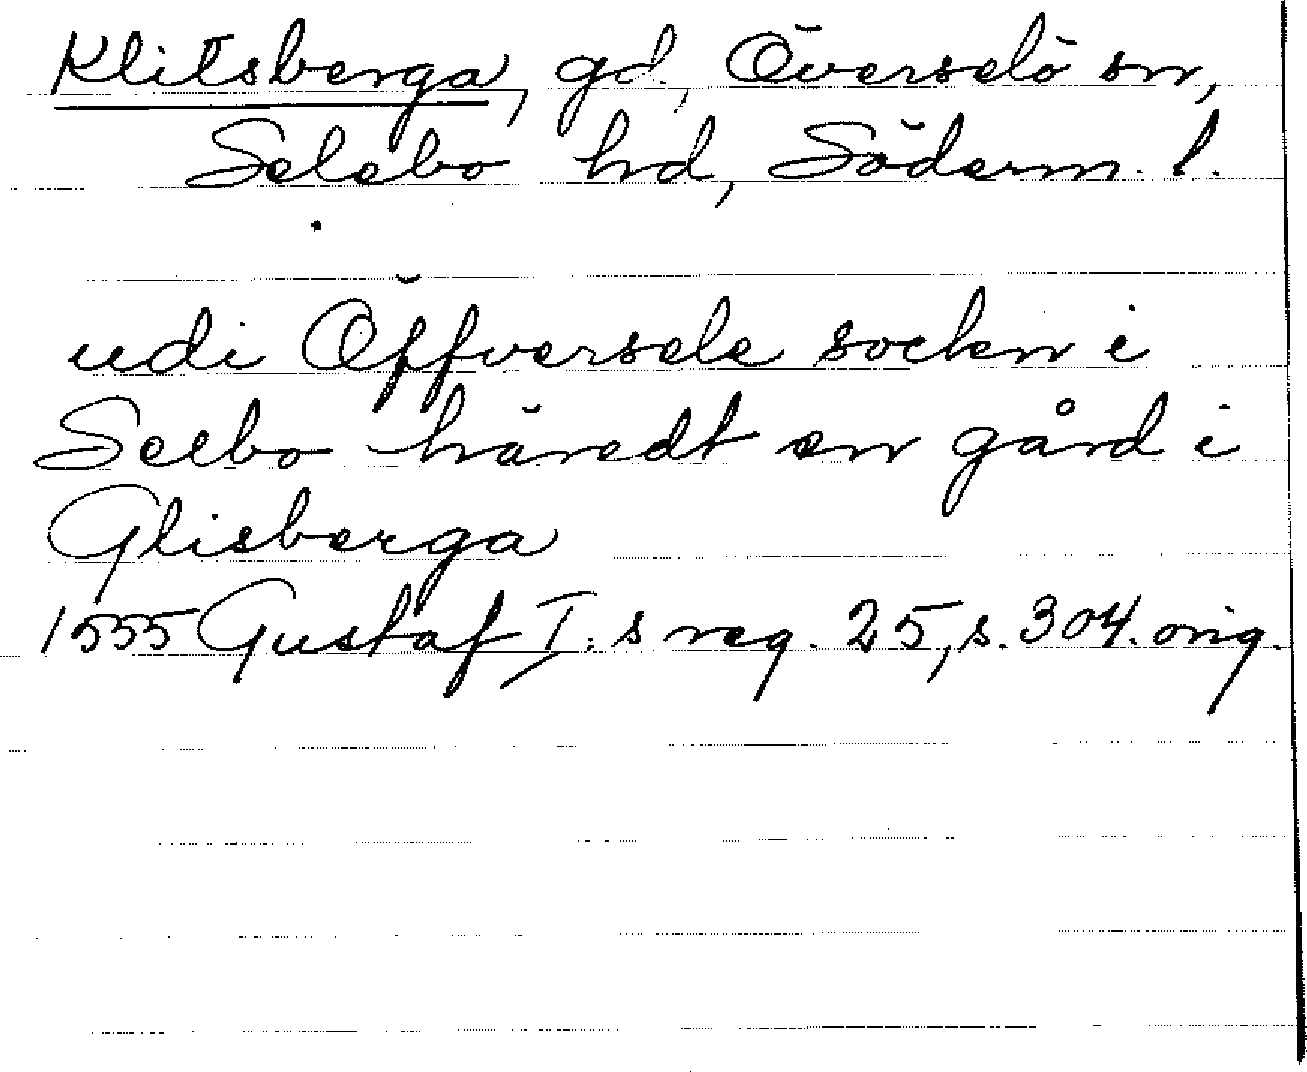 Klitsberga, gd, Överselö sn,
Selebo hd, Söderm. l.
udi Öffversele socken i
Seebo häredt en gård i
Glisberga
1555 Gustaf I:s reg. 25, s. 304. orig.